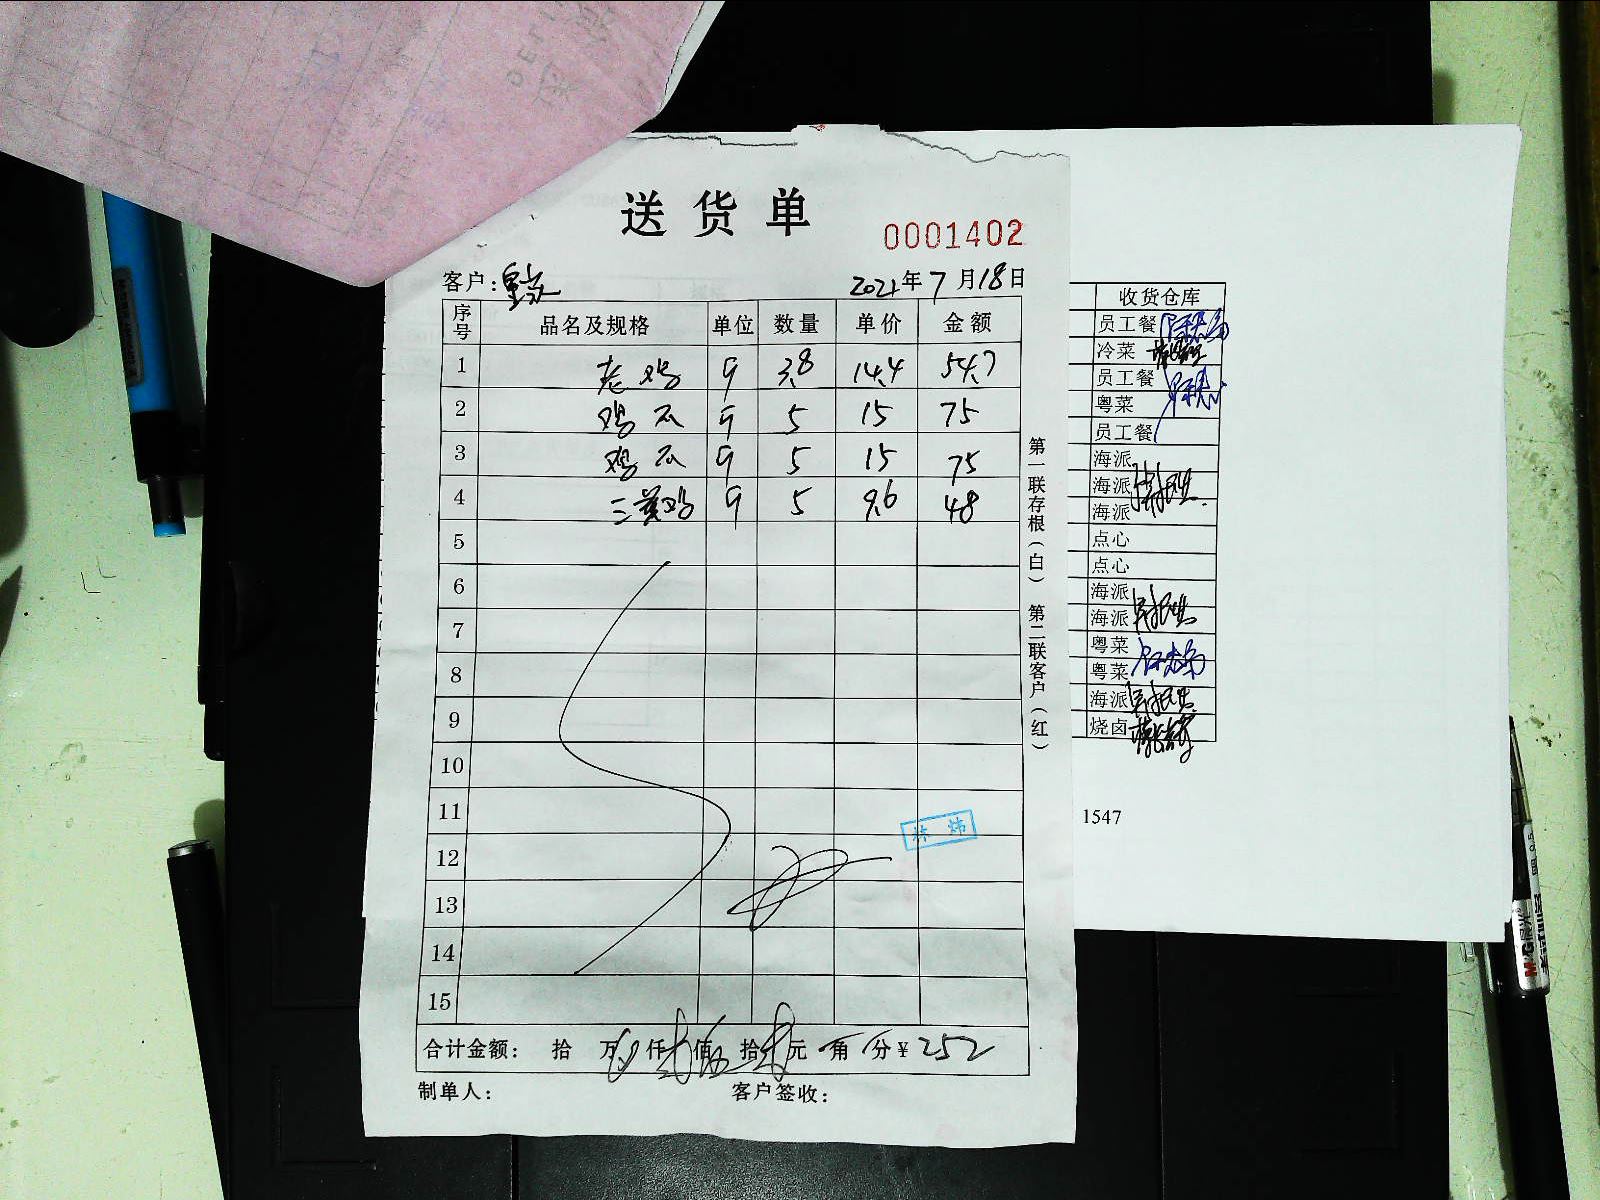 送货单
0001402
客户:
2021年7月18日
序号 品名及规格 单位 数量 单价 金额
1 老鸡 斤 3.8 14.4 54.7
2 鸡爪 斤 5 15 75
3 鸡爪 斤 5 15 75
4 三黄鸡 斤 5 9.6 48
5
6
7
8
9
10
11
12
13
14
15
林炜
合计金额: 拾 万 仟 贰 佰 伍 拾 贰 元 角 分 ¥ 252
制单人: 客户签收:
第一联存根(白) 第二联客户(红)
收货仓库
员工餐
冷菜
员工餐
粤菜
员工餐
海派
海派
海派
点心
点心
海派
海派
粤菜
粤菜
海派
烧卤
1547
M&G